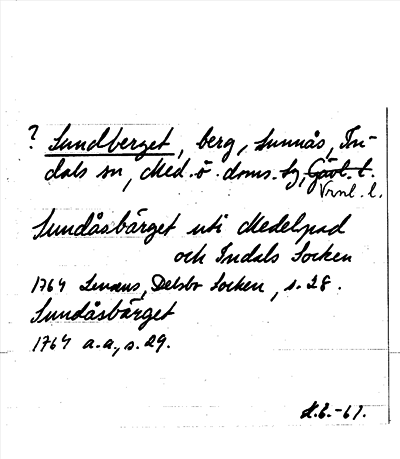 ? Sundberget, berg, Sunnås, In-
dals sn, Med. ö. doms. sg, Gävl. l.
Vrnl. l.
Sundåsbärget uti Medelpad
och Indals Socken
1764 Lenæus, Delsbo Socken, s. 28.
Sundåsbärget
1764 a.a., s. 29.
-67.